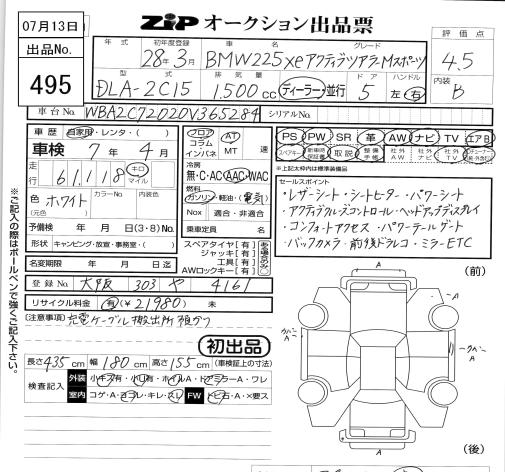 07月13日
出品No.
495
ZIP オークション出品票
年式 初年度登録 車名 グレード 評価点
28年3月 BMW225xe アクティブツアラーMスポーツ 4.5
型式 排気量 ドア ハンドル 内装
DLA-2C15 1.500cc ディーラー・並行 5 左・右 B
車台No. WBA2C72020V365284 シリアルNo.
車歴 自家用・レンタ・( )
車検 7年4月
走行 61,118 キロ マイル
色 ホワイト カラーNo. 内装色
(元色)
予備検 年 月 日(3・8)No.
形状 キャンピング・放宣・事務室・( )
名変期限 年 月 日迄
フロア コラム インパネ AT MT 速
冷房
無・C・AC・AAC・WAC
燃料
ガソリン・軽油・(電気)
Nox 適合・非適合
乗車定員 名
スペアタイヤ[有]
ジャッキ[有]
工具[有]
AWロックキー[有]
PS PW SR 革 AW ナビ TV エアB
スペアキー 新車時保証書 取説 整備手帳 社外AW 社外ナビ 社外TV
※上記太枠内は標準装備品
セールスポイント
・レザーシート・シートヒーター・パワーシート
・アクティブクルーズコントロール・ヘッドアップディスプレイ
・コンフォートアクセス・パワーテールゲート
・バックカメラ・前後ドラレコ・ミラーETC
登録No. 大阪 303 や 4161
リサイクル料金 有(¥21980) 未
[注意事項] 充電ケーブル搬出所預かり
初出品
長さ435cm 幅180cm 高さ155cm (車検証上の寸法)
検査記入 外装 小キズ有・小凹有・ホイルA・ドアミラーA・ワレ
室内 コゲ・A・ヨゴレ・キレ・スレ FW トビ石・A・×要ス
(前)
A
A
A
A
カバーA
A
(後)
※ご記入の際はボールペンで強くご記入下さい。